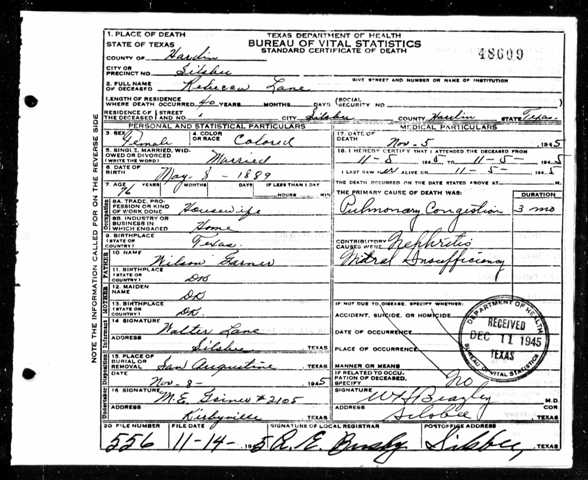 1. PLACE OF DEATH
STATE OF TEXAS
TEXAS DEPARTMENT OF HEALTH
BUREAU OF VITAL STATISTICS
STANDARD CERTIFICATE OF DEATH
48609
COUNTY OF Hardin
CITY OR PRECINCT NO. Silsbee
GIVE STREET AND NUMBER OR NAME OF INSTITUTION
2. FULL NAME OF DECEASED Rebecca Lane
LENGTH OF RESIDENCE WHERE DEATH OCCURRED 40 YEARS MONTHS DAYS (SOCIAL SECURITY NO.
RESIDENCE OF THE DECEASED STREET NO. CITY Silsbee COUNTY Hardin STATE Texas
PERSONAL AND STATISTICAL PARTICULARS
3. SEX Female
4. COLOR OR RACE Colored
5. SINGLE, MARRIED, WIDOWED OR DIVORCED (WRITE THE WORD) Married
6. DATE OF BIRTH May 8 - 1889
7. AGE YEARS MONTHS DAYS IF LESS THAN 1 DAY HOURS MIN
8A. TRADE, PROFESSION OR KIND OF WORK DONE Housewife
8B. INDUSTRY OR BUSINESS IN WHICH ENGAGED Home
9. BIRTHPLACE (STATE OR COUNTRY) Texas
10 NAME Wilson Garner
11. BIRTHPLACE (STATE OR COUNTRY) DK
12. MAIDEN NAME DK
13. BIRTHPLACE (STATE OR COUNTRY) DK
14 SIGNATURE Walter Lane
ADDRESS Silsbee TEXAS
15. PLACE OF BURIAL OR REMOVAL San Augustine TEXAS
DATE Nov. 8 - 1945
16 SIGNATURE
ADDRESS Kirbyville TEXAS
MEDICAL PARTICULARS
17. DATE OF DEATH Nov - 5 1945
18. I HEREBY CERTIFY THAT I ATTENDED THE DECEASED FROM 11-5 1945 TO 11-5- 1945
I LAST SAW ALIVE ON 11-5- 1945
THE DEATH OCCURRED ON THE DATE STATED ABOVE AT M.
THE PRIMARY CAUSE OF DEATH WAS: DURATION
Pulmonary Congestion 3 mo
CONTRIBUTORY CAUSES WERE Nephritis
Mitral Insufficiency
IF NOT DUE TO DISEASE, SPECIFY WHETHER:
ACCIDENT, SUICIDE, OR HOMICIDE
DATE OF OCCURRENCE
PLACE OF OCCURRENCE
MANNER OR MEANS
IF RELATED TO OCCUPATION OF DECEASED, SPECIFY No
SIGNATURE M.D.
ADDRESS Silsbee TEXAS
DEPARTMENT OF HEALTH
RECEIVED
DEC 11 1945
TEXAS
BUREAU OF VITAL STATISTICS
20 FILE NUMBER 556
FILE DATE 11-14- 1945
SIGNATURE OF LOCAL REGISTRAR
POSTOFFICE ADDRESS Silsbee, TEXAS
NOTE THE INFORMATION CALLED FOR ON THE REVERSE SIDE
Occupation
FATHER
MOTHER
Informant
Undertaker